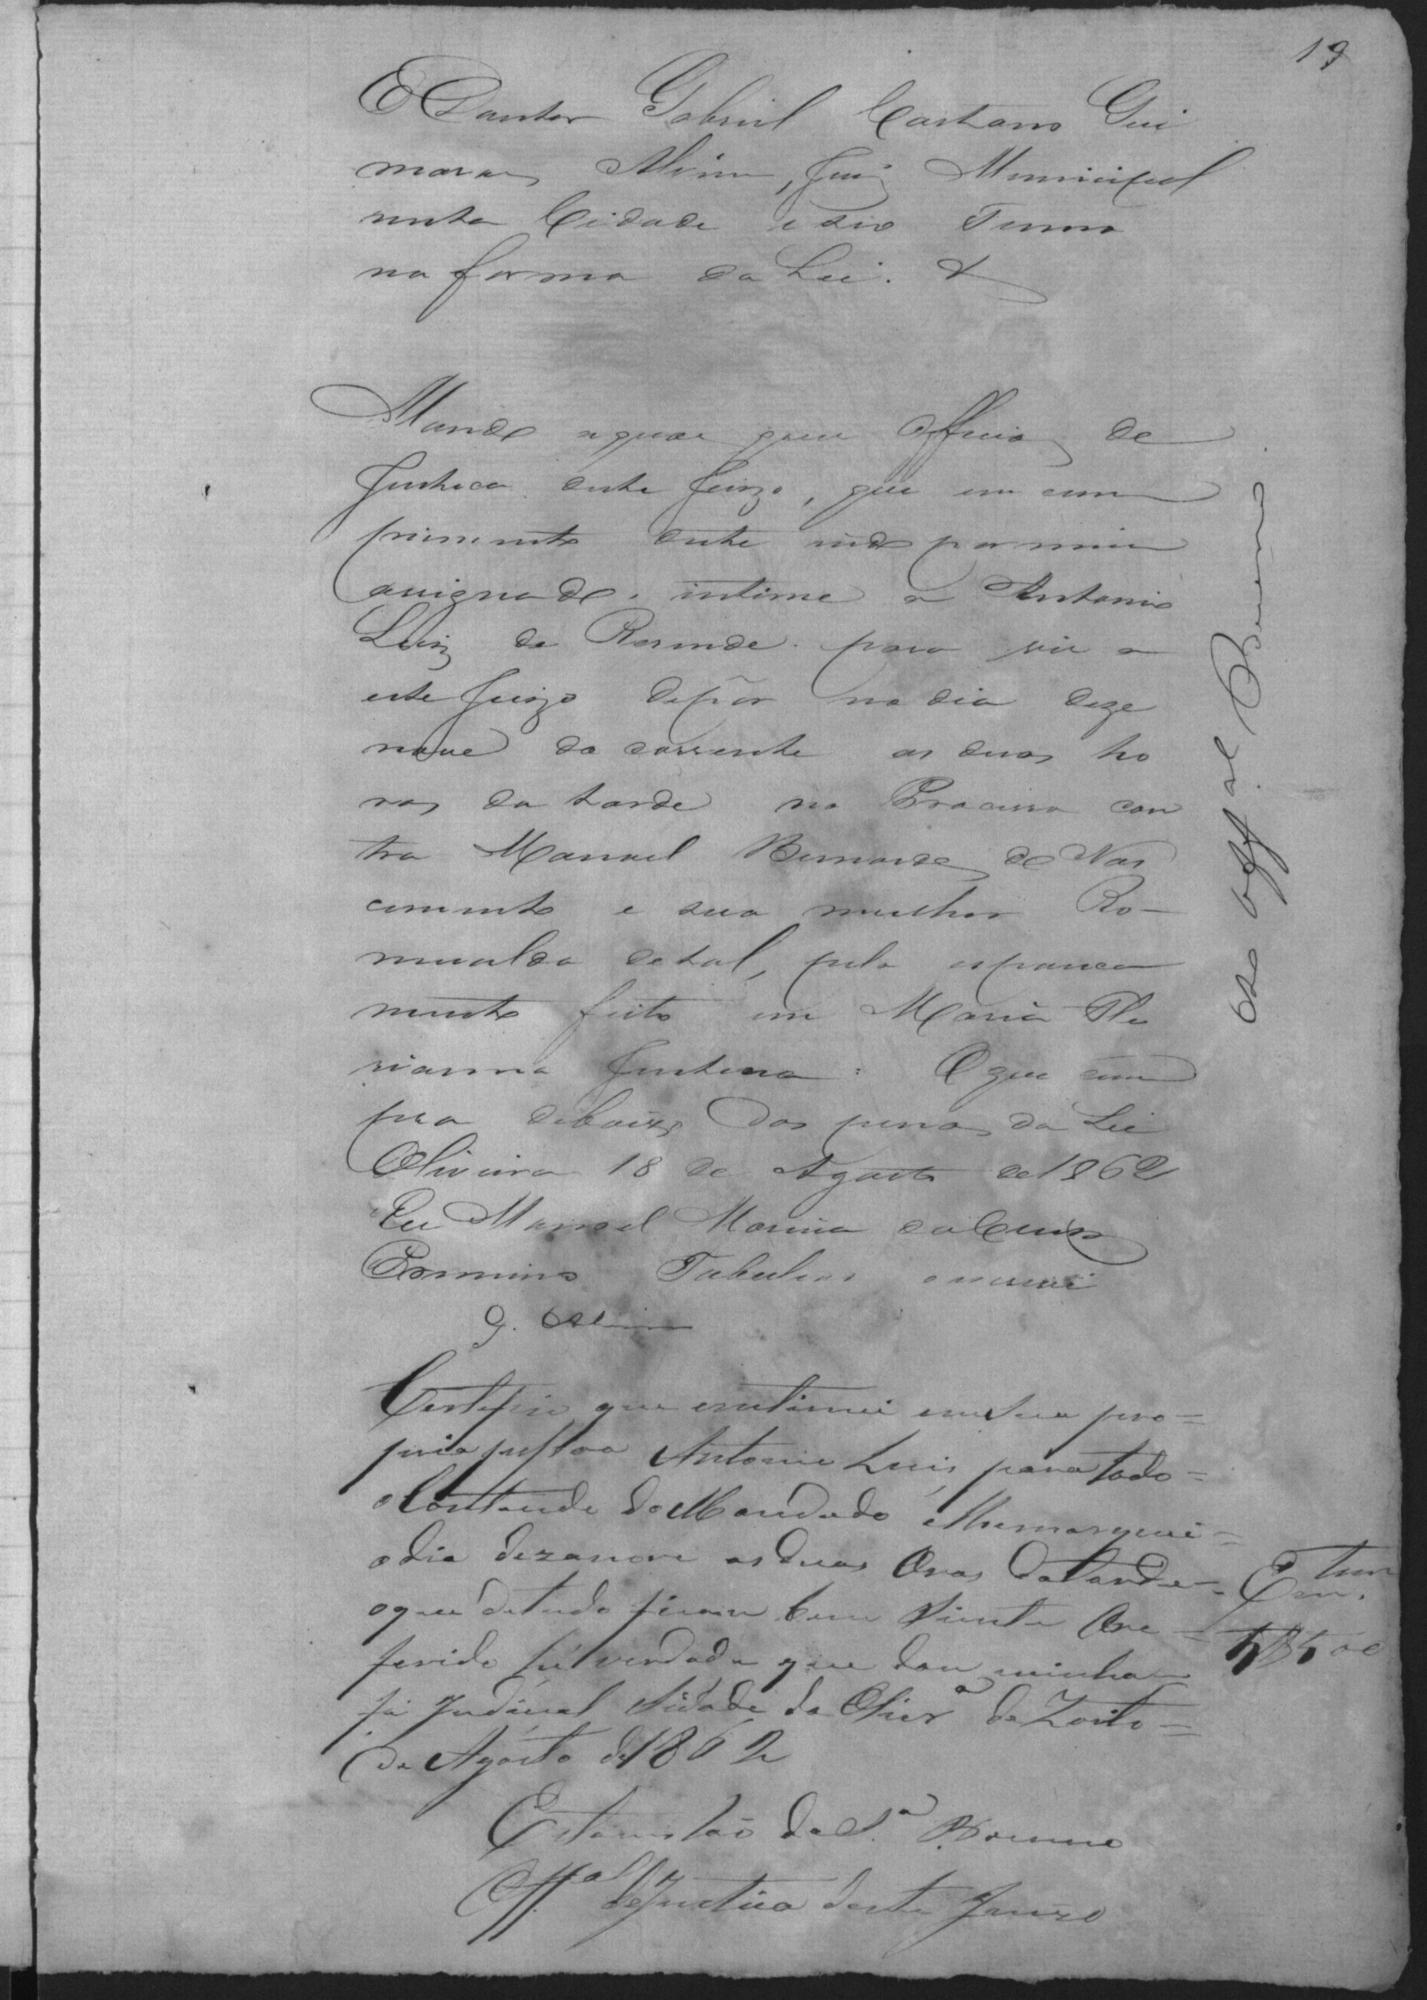 19
O Doutor Gabriel Caetano Gui
maraes Alvim, Juiz Municipal
nesta Cidade e seo Termo
na forma da Lei. &
Mando a qualquer Official de
Justica deste Juizo, que em cum
primento deste indo por mim
assignado, intime a Antonio
Luiz de Resende para vir a
este Juizo depôr no dia deze
nove do corrente as duas ho
ras da tarde no Processo con
tra Manoel Bernardes do Nas
cimento e sua mulher Ro-
mualda de tal, pelo espanca
mento feito em Maria
rianna Justina: O que cum
pra debaixo das penas da Lei
Oliveira 18 de Agosto de 1862
Eu Manoel Maria da Cunha
Tabeliam o escrevi
G. Alvim
Ao Offal Bruno
Certefico que entimei em sua pro=
pria pessoa Antonio Luis, para todo=
o Contiudo do Mandado e lhe marquei=
o dia dezanove as duas Oras da tarde=
o que de tudo ficou bem Siente Ore=
ferido hé verdade que dou minha=
fé Judicial Sidade da Olivra dezoito=
de Agosto de 1862
Estanislao da Sa. Bruno
Offal de Justica deste Juizo